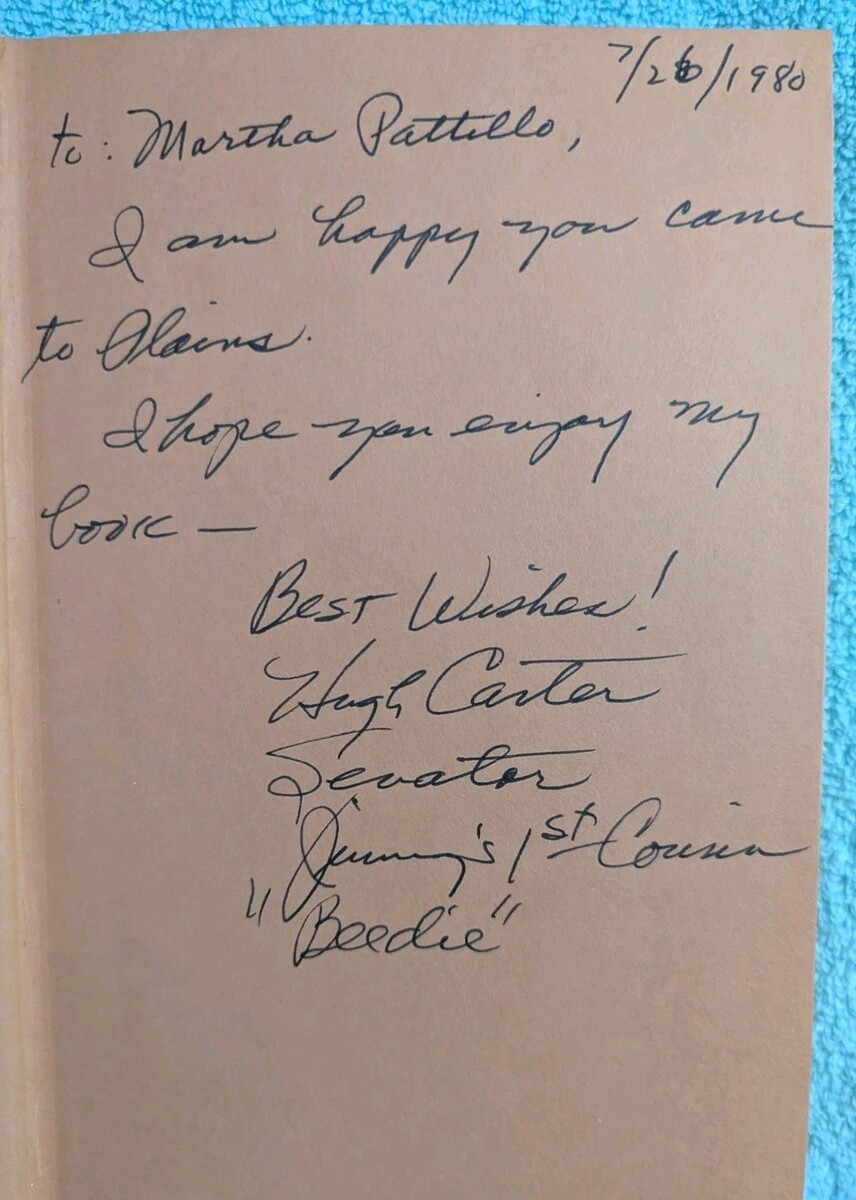 7/26/1980
to: Martha Pattillo,
I am happy you came
to Plains.
I hope you enjoy my
book —
Best Wishes!
Hugh Carter
Senator
Jimmy's 1st Cousin
"Beedie"